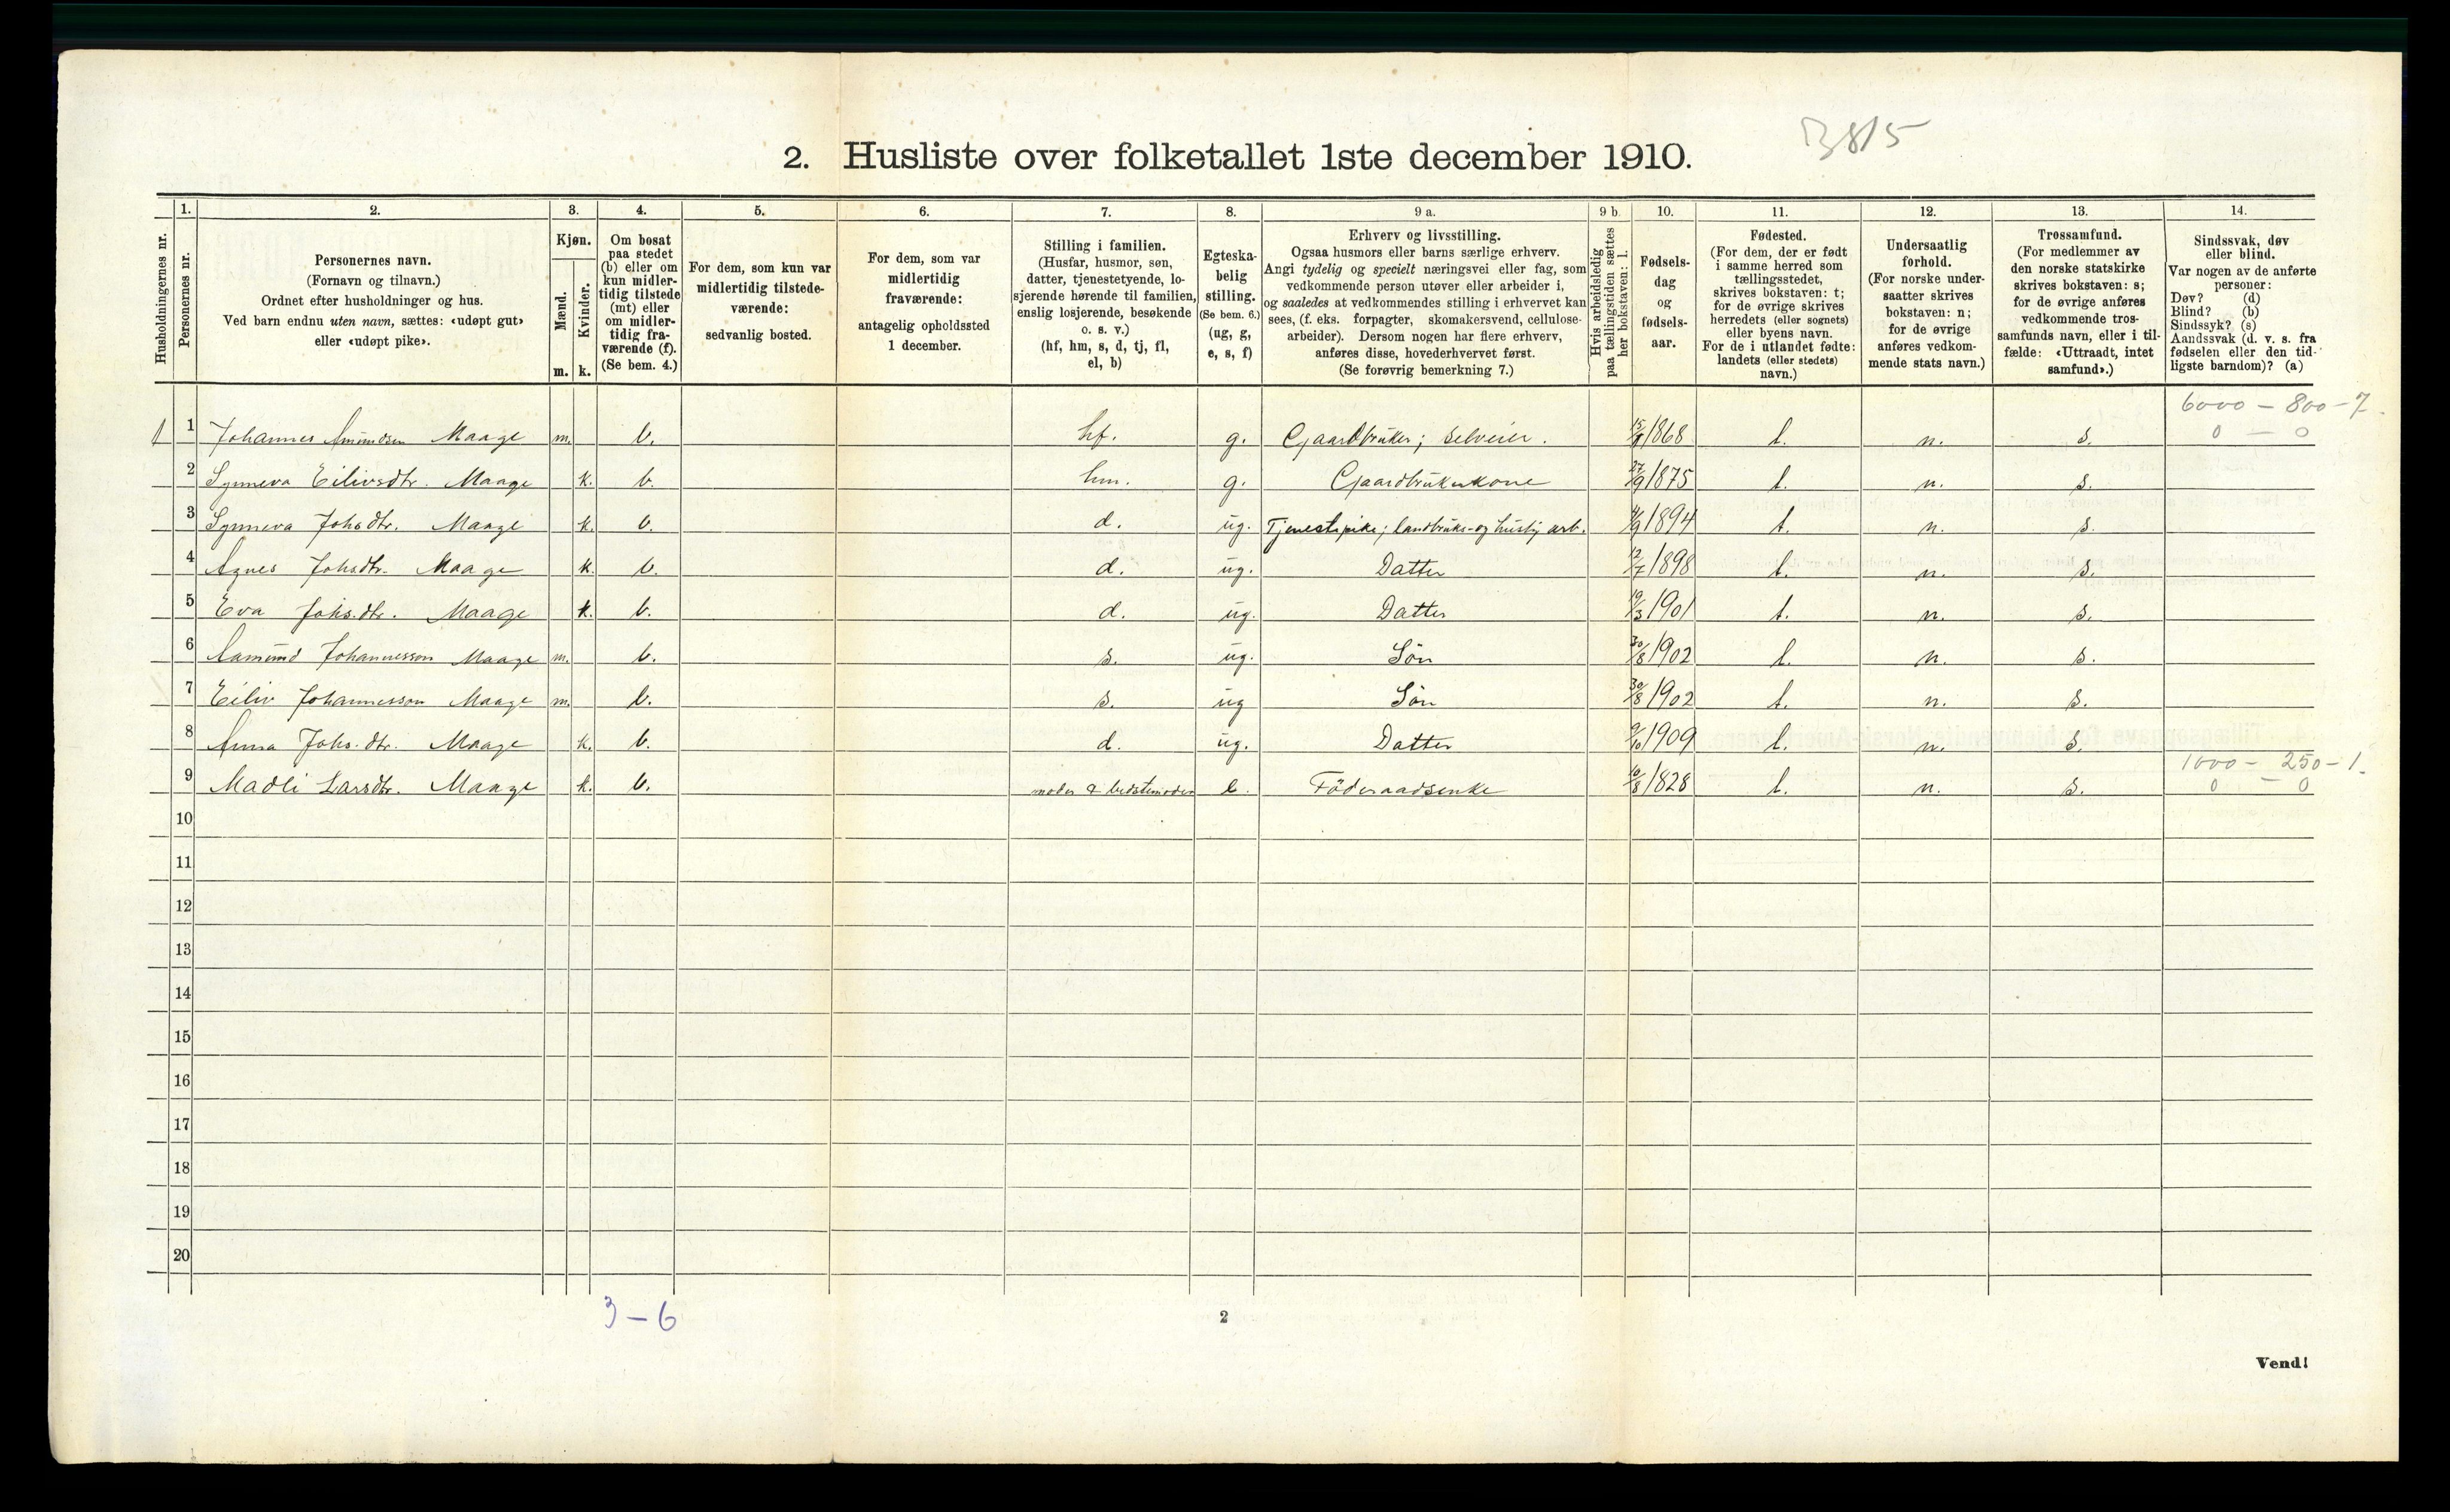 3815
2. Husliste over folketallet 1ste december 1910.
Husholdningernes nr.
1. Personernes nr.
2. Personernes navn.
(Fornavn og tilnavn.)
Ordnet efter husholdninger og hus.
Ved barn endnu uten navn, sættes: «udøpt gut»
eller «udøpt pike».
3. Kjøn.
Mænd. m.
Kvinder. k.
4. Om bosat
paa stedet
(b) eller om
kun midler-
tidig tilstede
(mt) eller
om midler-
tidig fra-
værende (f).
(Se bem. 4.)
5. For dem, som kun var
midlertidig tilstede-
værende:
sedvanlig bosted.
6. For dem, som var
midlertidig
fraværende:
antagelig opholdssted
1 december.
7. Stilling i familien.
(Husfar, husmor, søn,
datter, tjenestetyende, lo-
sjerende hørende til familien,
enslig losjerende, besøkende
o. s. v.)
(hf, hm, s, d, tj, fl,
el, b)
8. Egteska-
belig
stilling.
(Se bem. 6.)
(ug, g,
e, s, f)
9 a. Erhverv og livsstilling.
Ogsaa husmors eller barns særlige erhverv.
Angi tydelig og specielt næringsvei eller fag, som
vedkommende person utøver eller arbeider i,
og saaledes at vedkommendes stilling i erhvervet kan
sees, (f. eks. forpagter, skomakersvend, cellulose-
arbeider). Dersom nogen har flere erhverv,
anføres disse, hovederhvervet først.
(Se forøvrig bemerkning 7.)
9 b. Hvis arbeidsledig
paa tællingstiden sættes
her bokstaven: l.
10. Fødsels-
dag
og
fødsels-
aar.
11. Fødested.
(For dem, der er født
i samme herred som
tællingsstedet,
skrives bokstaven: t;
for de øvrige skrives
herredets (eller sognets)
eller byens navn.
For de i utlandet fødte:
landets (eller stedets)
navn.)
12. Undersaatlig
forhold.
(For norske under-
saatter skrives
bokstaven: n;
for de øvrige
anføres vedkom-
mende stats navn.)
13. Trossamfund.
(For medlemmer av
den norske statskirke
skrives bokstaven: s;
for de øvrige anføres
vedkommende tros-
samfunds navn, eller i til-
fælde: «Uttraadt, intet
samfund».)
14. Sindssvak, døv
eller blind.
Var nogen av de anførte
personer:
Døv? (d)
Blind? (b)
Sindssyk? (s)
Aandssvak (d. v. s. fra
fødselen eller den tid-
ligste barndom)? (a)
6000 – 800 – 7.
1 1 Johannes Amundsen Maage m. b. hf. g. Gaardbruker; selveier. 1868 t. n. s. 0 – 0
2 Synneva Eilivsdtr. Maage k. b. hm. g. Gaardbrukerkone 27/9 1875 t. n. s.
3 Synneva Johsdtr. Maage k. b. d. ug. Tjenestepike; landbruks- og husly arb. 1894 t. n. s.
4 Agnes Johsdtr. Maage k. b. d. ug. Datter 12/7 1898 t. n. s.
5 Eva Johs.dtr. Maage k. b. d. ug. Datter 19/3 1901 t. n. s.
6 Aamund Johannesson Maage m. b. s. ug. Søn 30/8 1902 t. n. s.
7 Eiliv Johannesson Maage m. b. s. ug Søn 30/8 1902 t. n. s.
8 Anna Johs.dtr. Maage k. b. d. ug. Datter 9/10 1909 t. n. s.
1000 – 250 – 1.
9 Madli Larsdtr. Maage k. b. moder & bedstemoder e. Føderaadsenke 10/8 1828 t. n. s. 0 – 0
10
11
12
13
14
15
16
17
18
19
20
3 – 6
2
Vend!